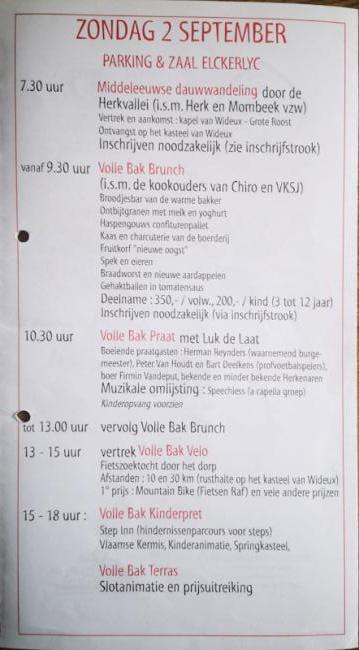 ZONDAG 2 SEPTEMBER
PARKING & ZAAL ELCKERLYC
7.30 uur Middeleeuwse dauwwandeling door de
Herkvallei (i.s.m. Herk en Mombeek vzw)
Vertrek en aankomst : kapel van Wideux - Grote Roost
Ontvangst op het kasteel van Wideux
Inschrijven noodzakelijk (zie inschrijfstrook)
vanaf 9.30 uur Volle Bak Brunch
(i.s.m. de kookouders van Chiro en VKSJ)
Broodjesbar van de warme bakker
Ontbijtgranen met melk en yoghurt
Haspengouws confiturenpallet
Kaas en charcuterie van de boerderij
Fruitkorf "nieuwe oogst"
Spek en eieren
Braadworst en nieuwe aardappelen
Gehaktballen in tomatensaus
Deelname : 350,- / volw., 200,- / kind (3 tot 12 jaar)
Inschrijven noodzakelijk (via inschrijfstrook)
10.30 uur Volle Bak Praat met Luk de Laat
Boeiende praatgasten : Herman Reynders (waarnemend burge-
meester), Peter Van Houdt en Bart Deelkens (profvoetbalspelers),
boer Firmin Vandeput, bekende en minder bekende Herkenaren
Muzikale omlijsting : Speechless (a capella groep)
Kinderopvang voorzien
tot 13.00 uur vervolg Volle Bak Brunch
13 - 15 uur vertrek Volle Bak Velo
Fietszoektocht door het dorp
Afstanden : 10 en 30 km (rusthalte op het kasteel van Wideux)
1° prijs : Mountain Bike (Fietsen Raf) en vele andere prijzen
15 - 18 uur : Volle Bak Kinderpret
Step Inn (hindernissenparcours voor steps)
Vlaamse Kermis, Kinderanimatie, Springkasteel,
Volle Bak Terras
Slotanimatie en prijsuitreiking